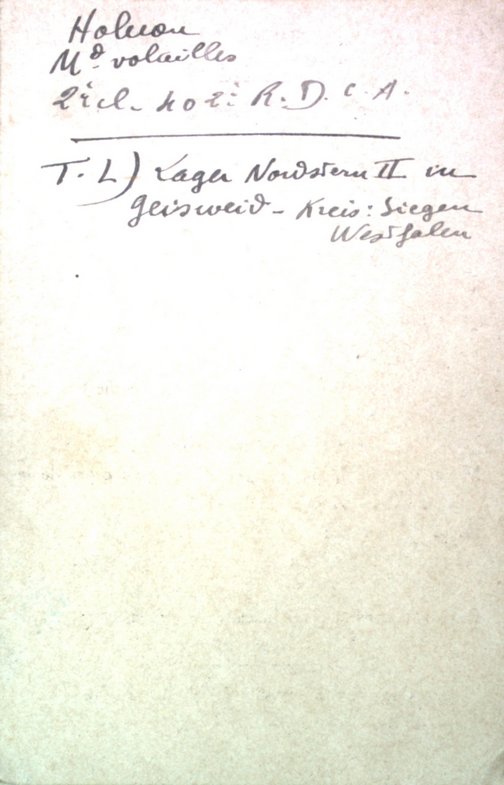 Holnon
Md volailles
2è cl. 402è R. D. C. A.
T. L) Lager Nordstern II in
Geisweid - Kreis: Siegen
Westfalen